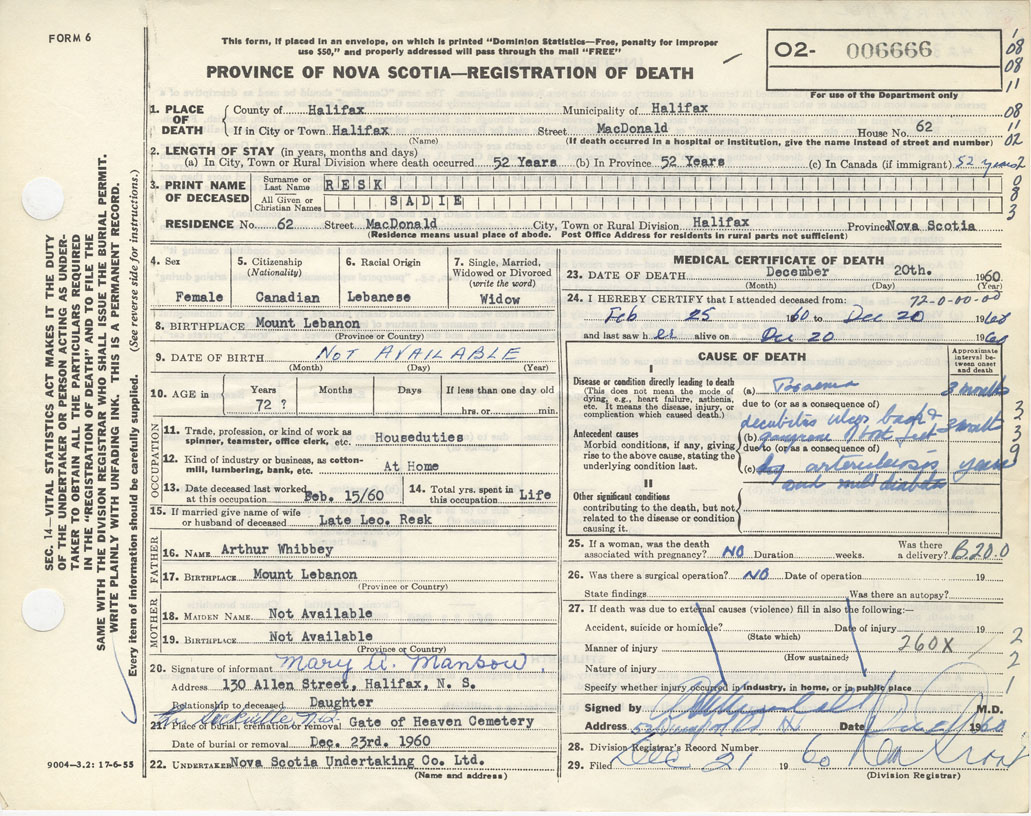 FORM 6
This form, if placed in an envelope, on which is printed "Dominion Statistics—Free, penalty for improper
use $50," and properly addressed will pass through the mail "FREE"
PROVINCE OF NOVA SCOTIA—REGISTRATION OF DEATH
02- 006666
For use of the Department only
1
08
08
11
08
11
02
2
0
8
3
SEC. 14—VITAL STATISTICS ACT MAKES IT THE DUTY
OF THE UNDERTAKER OR PERSON ACTING AS UNDER-
TAKER TO OBTAIN ALL THE PARTICULARS REQUIRED
IN THE "REGISTRATION OF DEATH" AND TO FILE THE
SAME WITH THE DIVISION REGISTRAR WHO SHALL ISSUE THE BURIAL PERMIT.
WRITE PLAINLY WITH UNFADING INK. THIS IS A PERMANENT RECORD.
Every item of information should be carefully supplied. (See reverse side for instructions.)
1. PLACE OF DEATH
County of Halifax Municipality of Halifax
If in City or Town Halifax Street MacDonald House No. 62
(Name) (If death occurred in a hospital or institution, give the name instead of street and number)
2. LENGTH OF STAY (in years, months and days)
(a) In City, Town or Rural Division where death occurred 52 Years (b) In Province 52 Years (c) In Canada (if immigrant) 52 years
3. PRINT NAME OF DECEASED
Surname or Last Name RESK
All Given or Christian Names SADIE
RESIDENCE No. 62 Street MacDonald City, Town or Rural Division Halifax Province Nova Scotia
(Residence means usual place of abode. Post Office Address for residents in rural parts not sufficient)
4. Sex
Female
5. Citizenship
(Nationality)
Canadian
6. Racial Origin
Lebanese
7. Single, Married,
Widowed or Divorced
(write the word)
Widow
8. BIRTHPLACE Mount Lebanon
(Province or Country)
9. DATE OF BIRTH NOT AVAILABLE
(Month) (Day) (Year)
10. AGE in Years Months Days If less than one day old
72 ? hrs. or min.
OCCUPATION
11. Trade, profession, or kind of work as
spinner, teamster, office clerk, etc. Houseduties
12. Kind of industry or business, as cotton-
mill, lumbering, bank, etc. At Home
13. Date deceased last worked
at this occupation Feb. 15/60
14. Total yrs. spent in
this occupation Life
15. If married give name of wife
or husband of deceased Late Leo. Resk
FATHER
16. NAME Arthur Whibbey
17. BIRTHPLACE Mount Lebanon
(Province or Country)
MOTHER
18. MAIDEN NAME Not Available
19. BIRTHPLACE Not Available
(Province or Country)
20. Signature of informant Mary A. Mansour
Address 130 Allen Street, Halifax, N. S.
Relationship to deceased Daughter
Sackville N.S.
21. Place of burial, cremation or removal Gate of Heaven Cemetery
Date of burial or removal Dec. 23rd. 1960
22. UNDERTAKER Nova Scotia Undertaking Co. Ltd.
(Name and address)
9004—3.2: 17-6-55
MEDICAL CERTIFICATE OF DEATH
23. DATE OF DEATH December 20th. 1960
(Month) (Day) (Year)
24. I HEREBY CERTIFY that I attended deceased from: 72-0-00-00
Feb 25 1960 to Dec 20 1960
and last saw h er alive on Dec 20 1960
CAUSE OF DEATH
Approximate
interval be-
tween onset
and death
I
Disease or condition directly leading to death
(This does not mean the mode of
dying, e.g., heart failure, asthenia,
etc. It means the disease, injury, or
complication which caused death.)
(a) Toxaemia 3 months
due to (or as a consequence of)
decubitus ulcers back &
(b) gangrene of both feet 3 months
due to (or as a consequence of)
(c) arteriosclerosis years
and mild diabetes
Antecedent causes
Morbid conditions, if any, giving
rise to the above cause, stating the
underlying condition last.
3
3
3
9
II
Other significant conditions
contributing to the death, but not
related to the disease or condition
causing it.
25. If a woman, was the death
associated with pregnancy? NO Duration weeks. Was there
a delivery? B.20.0
26. Was there a surgical operation? NO Date of operation 19
State findings Was there an autopsy?
27. If death was due to external causes (violence) fill in also the following:—
Accident, suicide or homicide? Date of injury 19
(State which)
Manner of injury 260X
(How sustained)
Nature of injury
Specify whether injury occurred in industry, in home, or in public place
2
2
1
Signed by M.D.
Address Date 1960
28. Division Registrar's Record Number
29. Filed Dec 21 19 60
(Division Registrar)